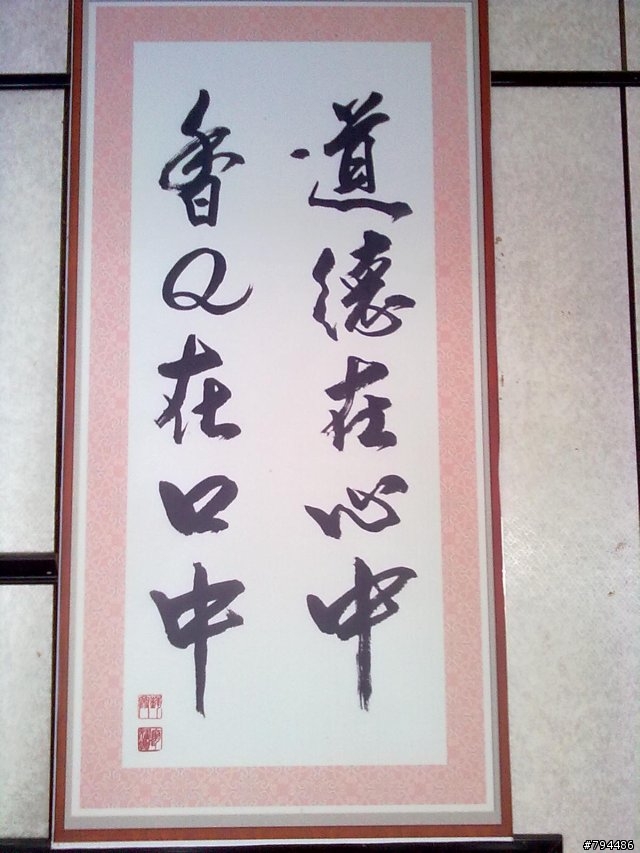 道德在心中
香Q在口中
#794486